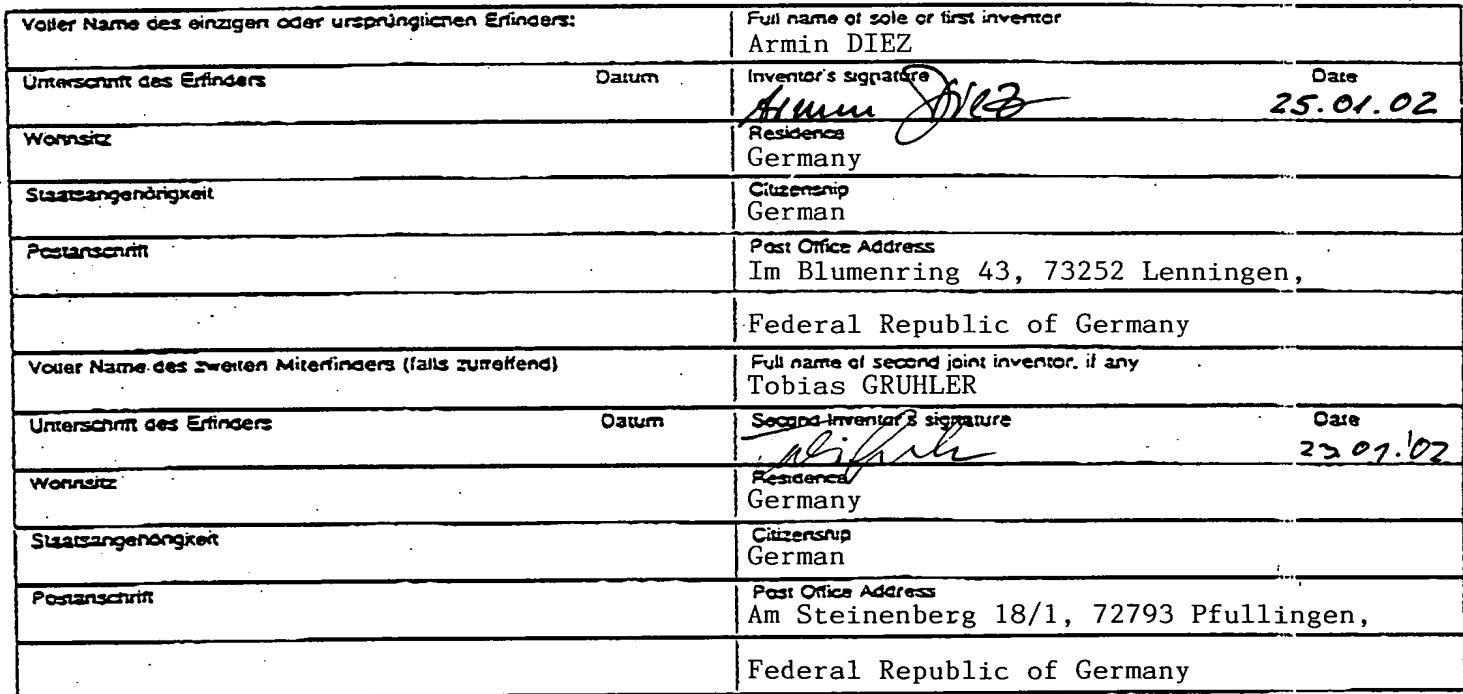 Voller Name des einzigen oder ursprünglichen Erfinders:
Full name of sole or first inventor
Armin DIEZ
Unterschrift des Erfinders Datum
Inventor's signature Date
Armin Diez 25.01.02
Wohnsitz
Residence
Germany
Staatsangehörigkeit
Citizenship
German
Postanschrift
Post Office Address
Im Blumenring 43, 73252 Lenningen,
Federal Republic of Germany
Voller Name des zweiten Miterfinders (falls zutreffend)
Full name of second joint inventor, if any
Tobias GRUHLER
Unterschrift des Erfinders Datum
Second Inventor's signature Date
Wohnsitz
Residence
Germany
Staatsangehörigkeit
Citizenship
German
Postanschrift
Post Office Address
Am Steinenberg 18/1, 72793 Pfullingen,
Federal Republic of Germany